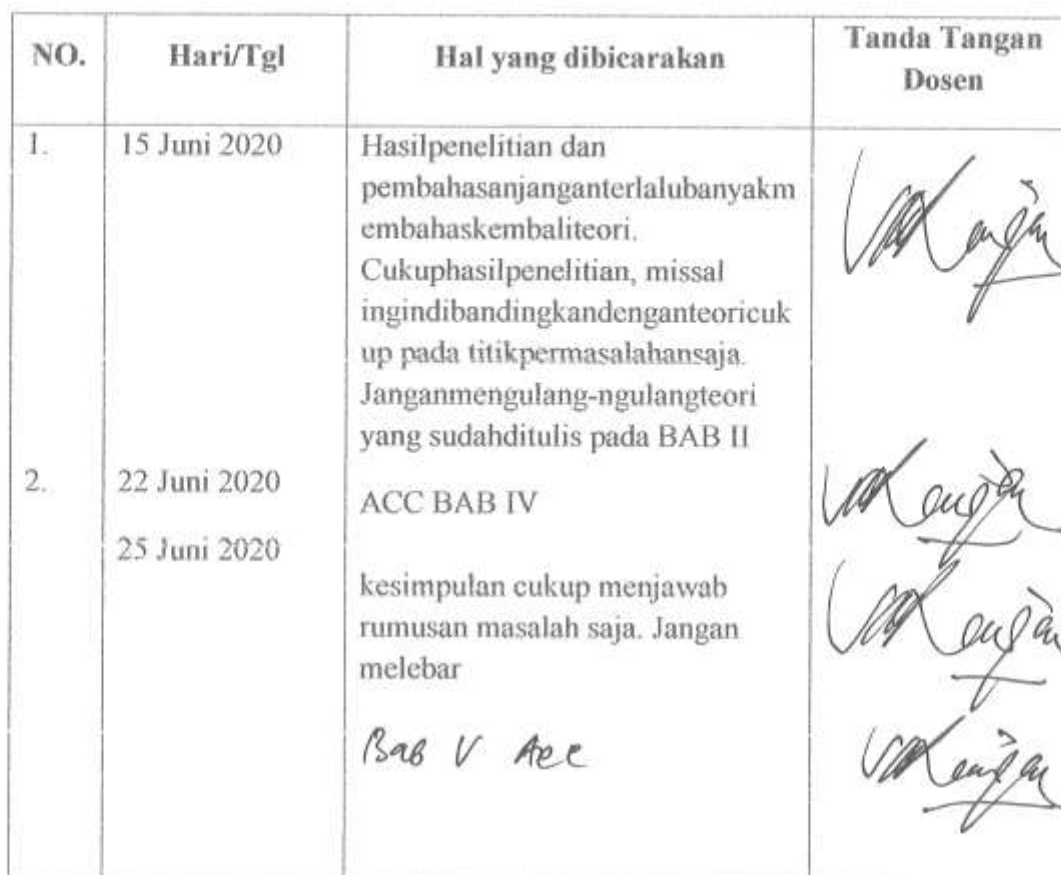 NO. Hari/Tgl Hal yang dibicarakan Tanda Tangan
Dosen
1. 15 Juni 2020 Hasilpenelitian dan
pembahasanjanganterlalubanyakm
embahaskembaliteori.
Cukuphasilpenelitian, missal
ingindibandingkandenganteoricuk
up pada titikpermasalahansaja.
Janganmengulang-ngulangteori
yang sudahditulis pada BAB II
2. 22 Juni 2020 ACC BAB IV
25 Juni 2020
kesimpulan cukup menjawab
rumusan masalah saja. Jangan
melebar
Bab V Acc